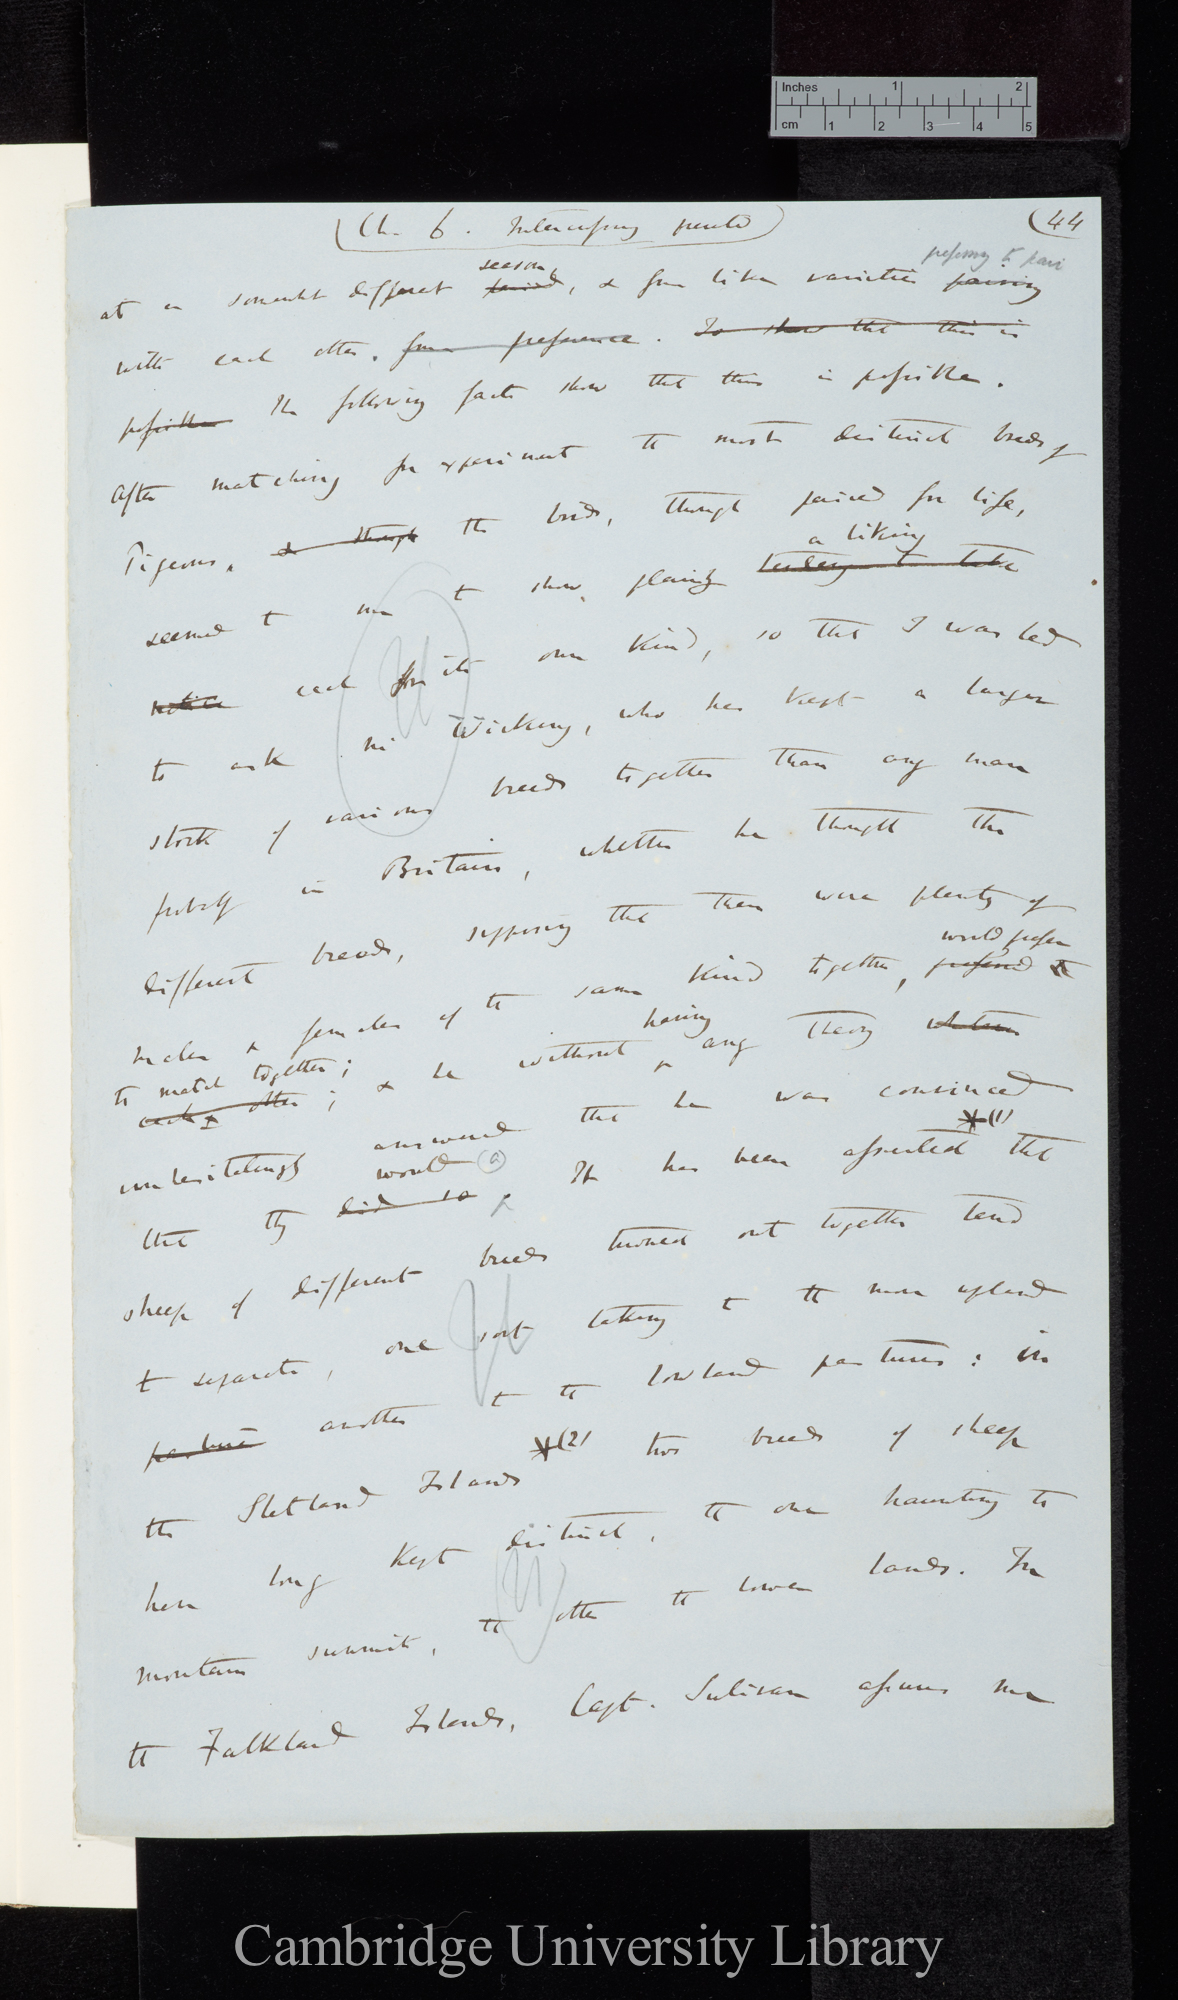 Inches 1 2
cm 1 2 3 4 5
(Ch. 6. Intercrossing (44
season prefering to pair
at a somewhat different period, & from like varieties pairing
with each other, from preference. To show that this is
possible The following facts show that this is possible.
After matching for experiment the most distinct breeds of
Pigeons, & though the birds, though paired for life,
a liking
seemed to me to show plainly tendency to
notice each for its own kind, so that I was led
to ask Mr Wicking, who has kept a larger
stock of various breeds together than any man
probably in Britain, whether he thought the
different breeds, supposing that there were plenty of
would prefer
males & females of the same kind together, preferred to
to match together; having
each other; & he without any theory
unhesitatingly answered that he was convinced
would (a) *(1)
that they did so. It has been asserted that
sheep of different breeds turned out together tend
to separate, one sort taking to the more upland
pasture another to the lowland pastures: in
the Shetland Islands *(2) two breeds of sheep
have long kept distinct, the one haunting the
mountain summit, the other the lower lands. In
the Falkland Islands, Capt. Sulivan assures me
Cambridge University Library